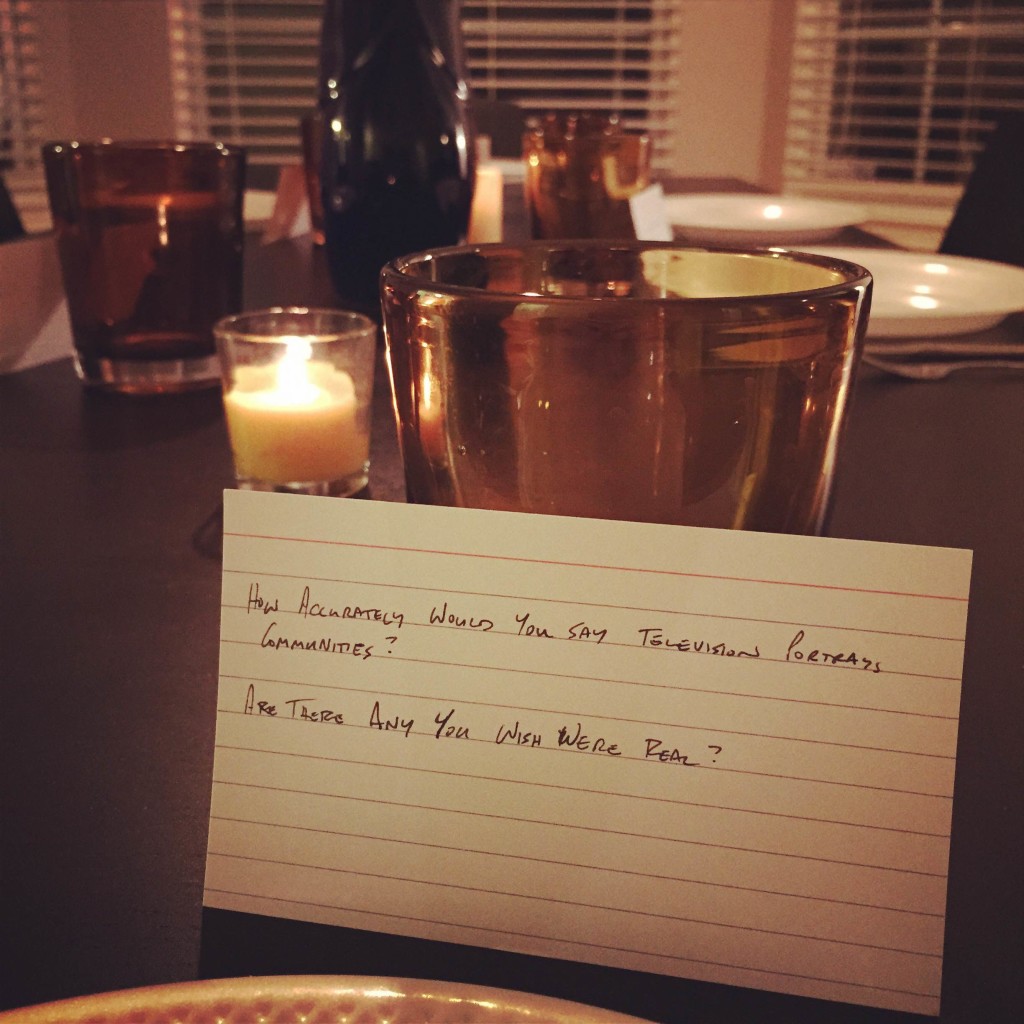 How Accurately Would You Say Television Portrays
Communities?
Are There Any You Wish Were Real?